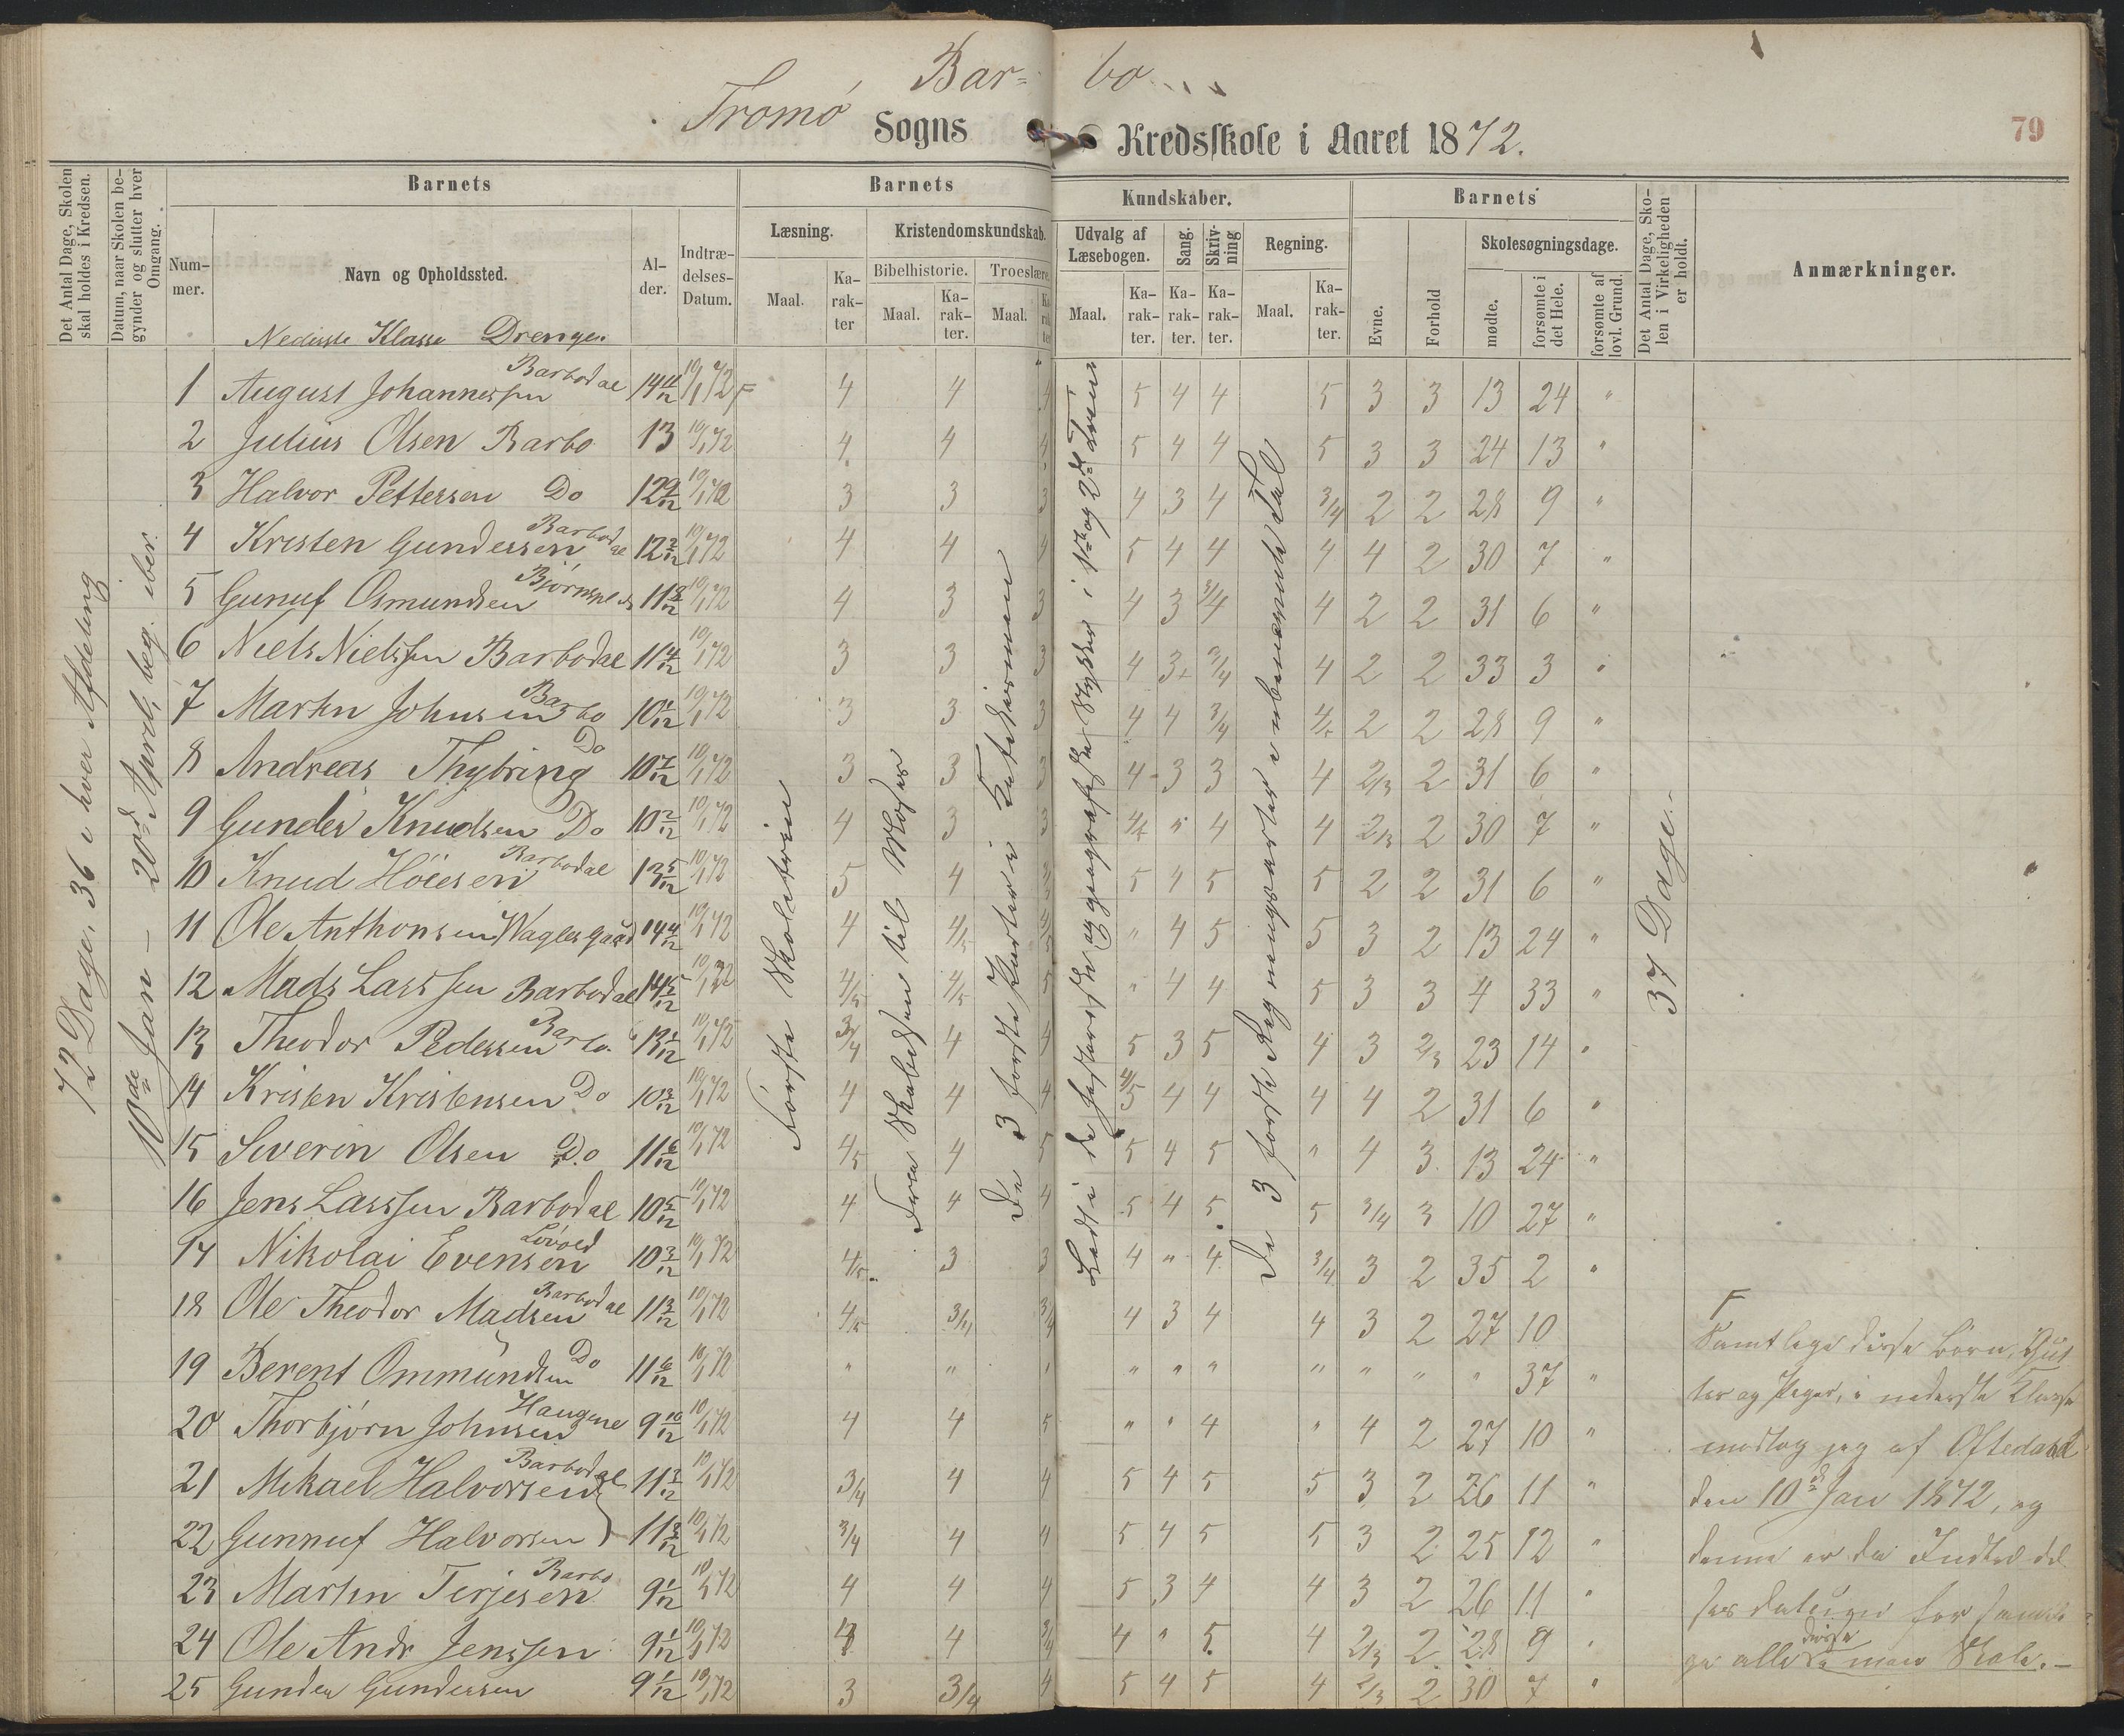 Bar= bo
Tromö Sogns Kredsskole i Aaret 1872.
79
Det Antal Dage, Skolen skal holdes i Kredsen.
Datum, naar Skolen begynder og slutter hver Omgang.
Barnets
Barnets
Kundskaber.
Barnets
Det Antal Dage, Skolen i Virkeligheden er holdt.
Anmærkninger.
Nummer.
Navn og Opholdssted.
Alder.
Indtrædelses-Datum.
Læsning.
Kristendomskundskab.
Udvalg af Læsebogen.
Sang.
Skrivning
Regning.
Evne.
Forhold
Skolesøgningsdage.
Maal.
Karakter
Bibelhistorie.
Troeslære.
Maal.
Karakter.
Maal.
Karakter
Maal.
Karakter.
Karakter.
Karakter.
Maal.
Karakter.
mødte.
forsømte i det Hele.
forsømte af lovl. Grund.
Nederste Klasse Drenge
72 Dage, 36 i hver Afdeling
10de Jan – 20de April, beg. iber.
Første Skoletrin
Fra Skabelsen til Moses
De 3 første Parter i Katekismen
Læst i de historiske og geografiske Stykker i 1ste og 2det Trin
De 3 første Regningsarter i ubenævnte Tal
37 Dage.
1 August Johannessen Barbodal 14 11/12 10/1 72 F 4 4 4 5 4 4 5 3 3 13 24 "
2 Julius Olsen Barbo 13 10/1 72 4 4 4 5 4 4 5 3 3 24 13 "
3 Halvor Pettersen Do 12 9/12 10/1 72 3 3 3 4 3 4 3/4 2 2 28 9 "
4 Kristen Gundersen Barbodal 12 2/12 10/1 72 4 4 4 5 4 4 4 4 2 30 7 "
5 Gunuf Osmundsen 11 8/12 10/1 72 4 3 3 4 3 3/4 4 2 2 31 6 "
6 Niels Nielssen Barbodal 11 4/12 10/1 72 3 3 3 4 3 3/4 4 2 2 33 3 "
7 Martin Johnsen Barbo 10 1/12 10/1 72 3 3 3 4 4 3/4 4/5 2 2 28 9 "
8 Andreas Thybring Do 10 7/12 10/1 72 3 3 3 4 3 3 4 2/3 2 31 6 "
9 Gunder Knudsen Do 10 2/12 10/1 72 4 3 3 4/5 " 4 4 2/3 2 30 7 "
10 Knud Höiesen Barbodal 13 5/12 10/1 72 5 4 5 4 5 5 2 2 31 6 "
11 Ole Anthonsen Wagles gaard 14 4/12 10/1 72 4 4/5 4/5 " 4 5 5 3 2 13 24 "
12 Mads Larssen Barbodal 14 5/12 10/1 72 4/5 4/5 5 " 4 4 5 3 3 4 33 "
13 Theodor Pedersen Barbo 13 1/12 10/1 72 3/4 4 4 5 3 5 4 3 2/3 23 14 "
14 Kristen Kristensen Do 10 3/12 10/1 72 4 4 4 4/5 4 4 4 4 2 31 6 "
15 Severin Olsen Do 11 6/12 10/1 72 4/5 4 5 5 4 5 " 4 3 13 24 "
16 Jens Larssen Barbodal 10 5/12 10/1 72 4 4 4 5 4 5 5 3/4 3 10 27 "
17 Nikolai Evensen Lövold 10 3/12 10/1 72 4/5 3 3 4 " 4 3/4 3 2 35 2 "
18 Ole Theodor Madsen Barbodal 11 3/12 10/1 72 4/5 3/4 3/4 4 3 4 4 3 2 27 10
19 Berent Ommundsen Do 11 6/12 10/1 72 " " " " " " " " " " 37 "
20 Thorbjørn Johnsen Haugene 9 10/12 10/1 72 4 4 5 " " 4 " 4 2 27 10 "
21 Mikael Halvorsen Barbodal 11 3/12 10/1 72 3/4 4 4 5 4 5 5 3 2 26 11 "
22 Gunnuf Halvorsen 11 3/12 10/1 72 3/4 4 4 5 4 5 5 3 2 25 12 "
23 Martin Terjesen Barbo 9 1/12 10/1 72 4 4 4 5 3 4 4 3 2 26 11 "
24 Ole Andr Jenssen 9 1/12 10/1 72 4 3/4 4 " 5 4 2/3 2 28 9 "
25 Gunder Gundersen 9 1/12 10/1 72 3 3/4 4 5 4 5 4 2/3 2 30 7 "
F
Samtlige disse Børn, Gut
ter og Piger, i nederste Klasse
modtog jeg af Oftedahl
den 10de Jan 1872, og
denne er da Indtræ del
ses datum for samtli
ge alle disse i min Skole. –